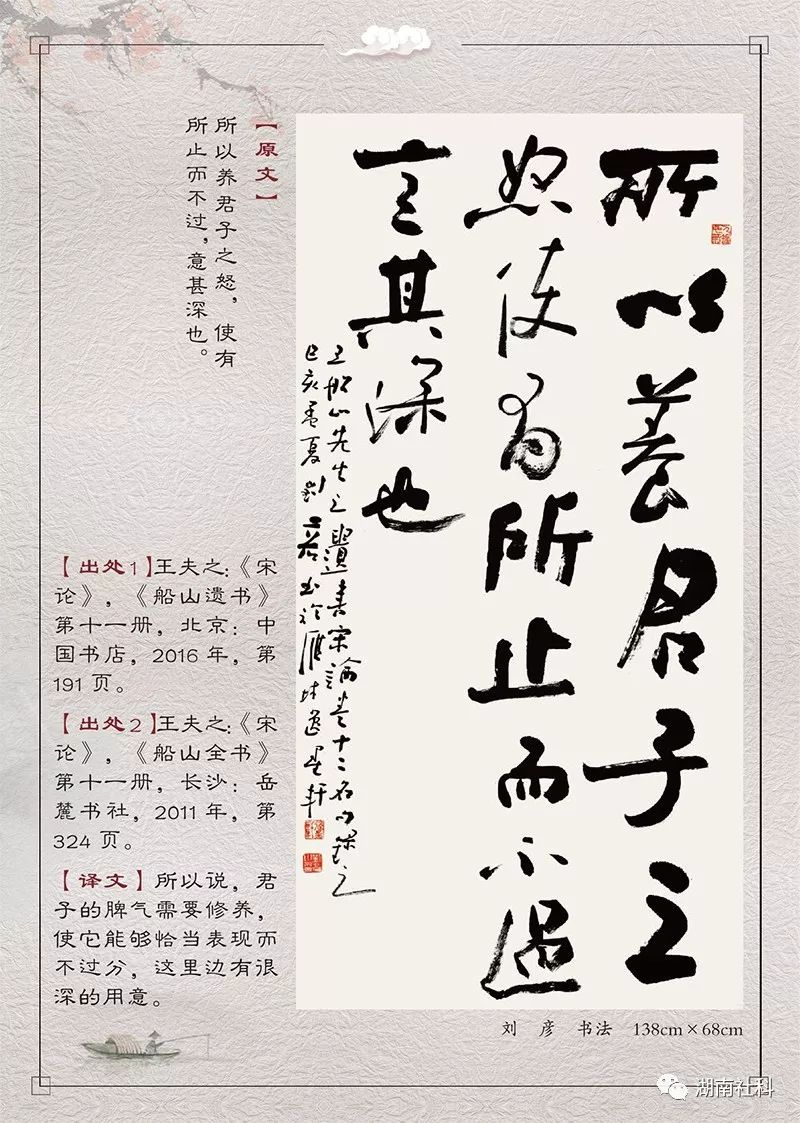 所以養君子之
怒使有所止而不過
言其深也
王船山先生之遺書宋論卷十二名句錄之
己亥孟夏劉彥書於雁城軒
【原文】
所以养君子之怒，使有
所止而不过，意甚深也。
【出处1】王夫之：《宋
论》，《船山遗书》
第十一册，北京：中
国书店，2016 年，第
191 页。
【出处2】王夫之：《宋
论》，《船山全书》
第十一册，长沙：岳
麓书社，2011 年，第
324 页。
【译文】所以说，君
子的脾气需要修养，
使它能够恰当表现而
不过分，这里边有很
深的用意。
刘 彦 书法 138cm×68cm
湖南社科